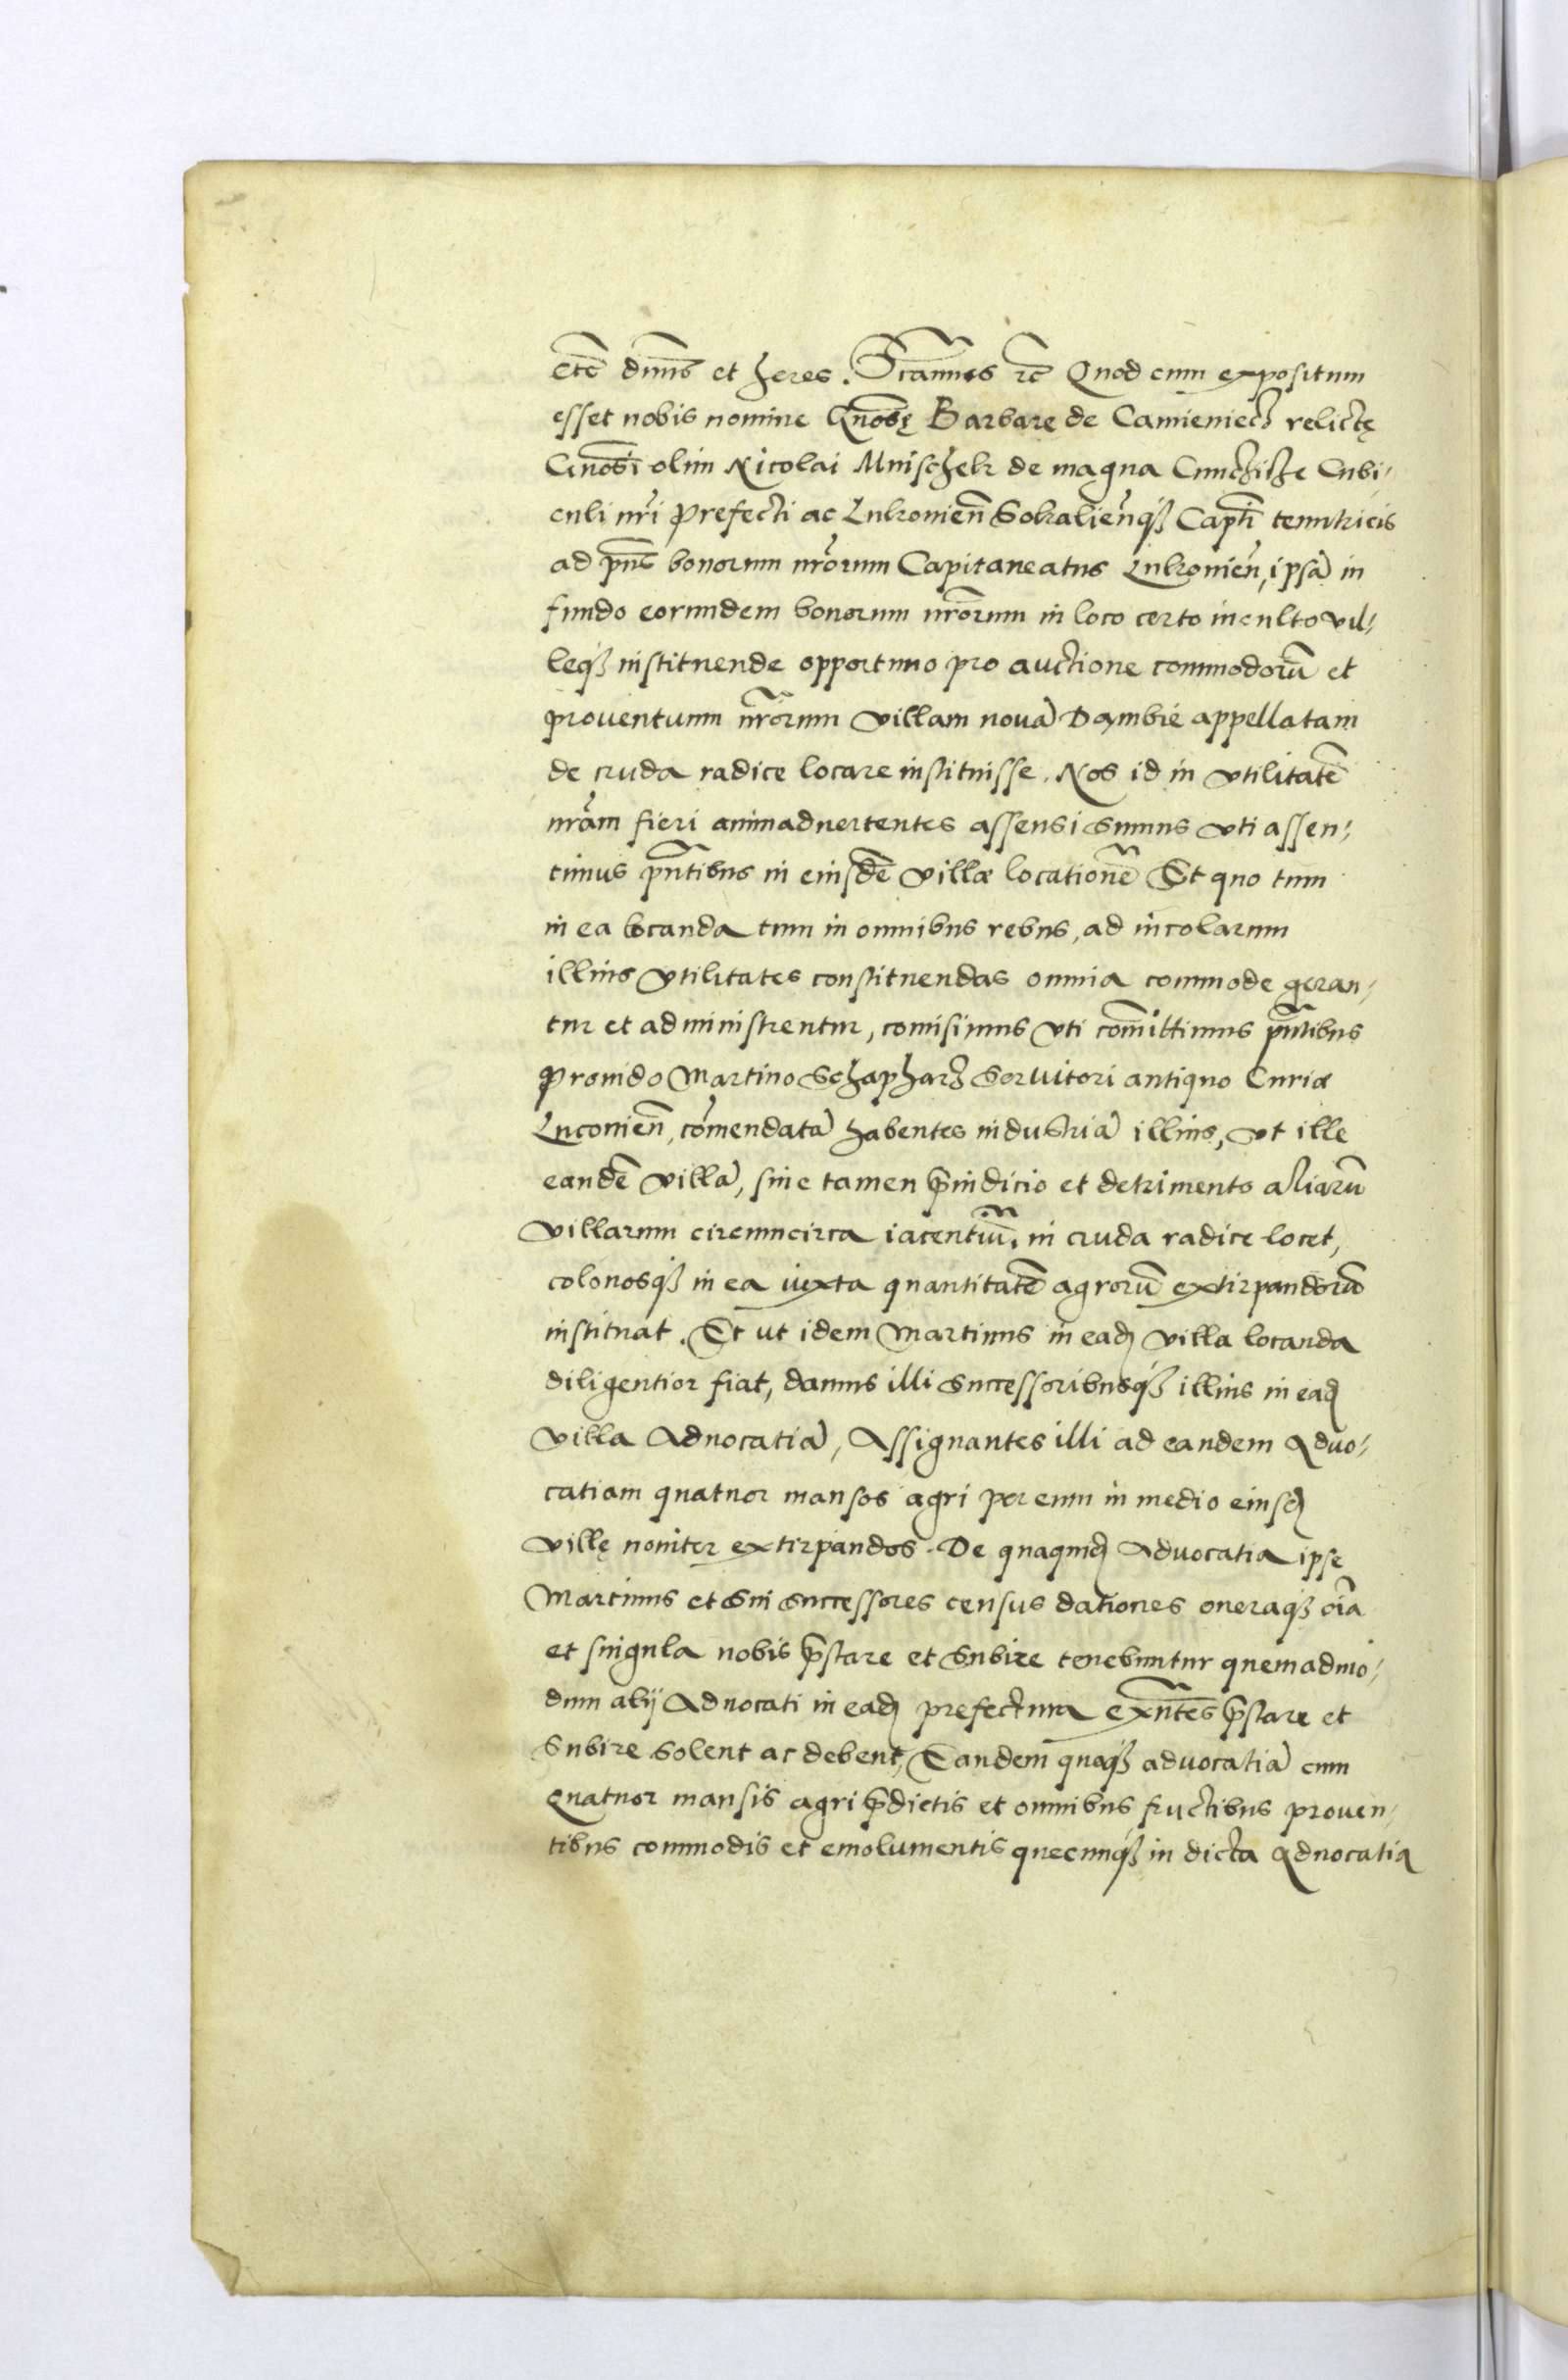 etc̄ dn̄us et heres. Sc̄camus rc̄ Quod cum expositum
esset nobis nomine Gn̄osę Barbare de Camieniecz relictę
Gn̄osi olim Nicolai Mnischek de magna Cunchicze Cubi-
culi nr̄i Prefecti ac Lukovień Sokalieńqȝ Capti tenutricis
ad pn̄s bonorum nr̄orum Capitaneatus Lukovień, ipsā in
fundo eorundem bonorum nr̄orum in loco certo inculto vil-
leqȝ instituende opportuno pro auctione commodorū et
proventuum nr̄orum villam novā Dambie appellatam
de cruda radice locare instituisse. Nos id in vtilitatē
nr̄am fieri animaduertentes assensi sumus vti assen-
timus pn̄tibus in eiusdē villæ locationē Et quo tum
in ea locanda tum in omnibus rebus, ad incolarum
illius vtilitates constituendas omnia commode geran-
tur et administrentur, comisimus vti com̄ittimus pn̄tibus
Prouido Martino Schapharz Servitori antiquo Curiæ
Luconień, com̄endatā habentes industriā illius, vt ille
eandē villā, sine tamen p̄iudicio et detrimento aliarū
villarum circumcirca iacentiū, in cruda radice locet,
colonosqȝ in ea iuxta quantitatē agrorū extirpandorū
instituat. Et ut idem Martinus in eadȝ villa locanda
diligentior fiat, damus illi Successoribusqȝ illius in eadȝ
villa Aduocatiā, Assignantes illi ad eandem Aduo-
catiam quatuor mansos agri per eum in medio eiusdȝ
villę nouiter extirpandos. De quaquidȝ Advocatia ipse
Martinus et sui successores census dationes oneraqȝ oīa
et singula nobis p̄stare et subire tenebuntur quemadmo-
dum alij Aduocati in eadȝ prefectura exn̄tes p̄stare et
subire solent ac debent, Eandem quoqȝ advocatiā cum
quatuor mansis agri p̄dictis et omnibus fructibus proven-
tibus commodis et emolumentis quecunqȝ in dicta Aduocatia